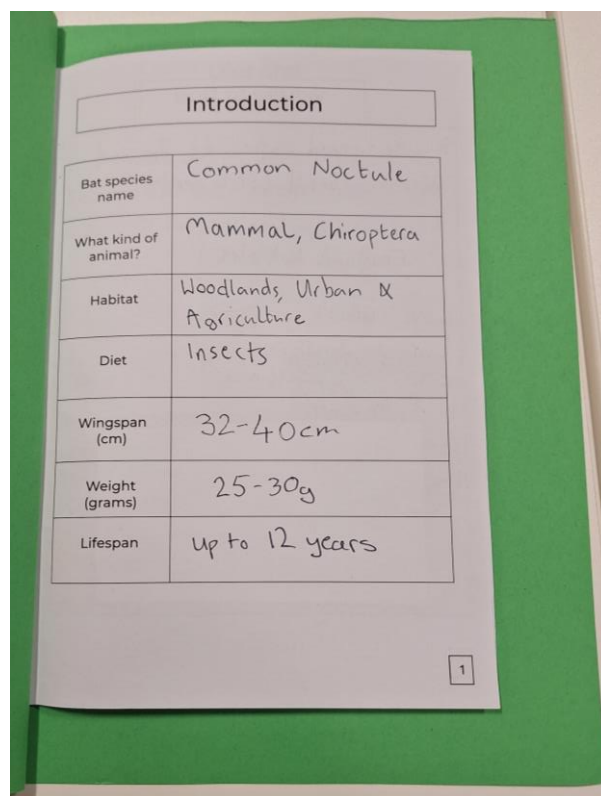 Introduction
Bat species
name
Common Noctule
What kind of
animal?
Mammal, Chiroptera
Habitat
Woodlands, Urban &
Agriculture
Diet
Insects
Wingspan
(cm)
32-40cm
Weight
(grams)
25-30g
Lifespan
up to 12 years
1